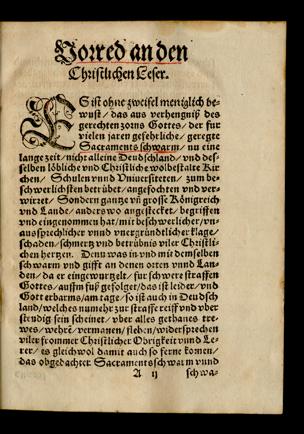 Vorred an den
Christlichen Leser.
ES ist ohne zweifel meniglich be-
wust / das aus verhengniß des
gerechten zorns Gottes / der fur
vielen jaren gefehrliche / geregte
Sacramentschwarm / nu eine
lange zeit / nicht alleine Deudschland / vnd des-
selben löbliche vnd Christliche wolbestalte Kir
chen / Schulen vnnd Vniuersiteten / zum be-
schwerlichsten betrübet / angefochten vnd ver-
wirret / Sondern gantze vñ grosse Königreich
vnd Lande / anders wo angestecket / begriffen
vnd eingenommen hat / mit beschwerlicher / vn-
aussprechlicher vnnd vnergründtlicher klage /
schaden / schmertz vnd betrübnis viler Christli-
chen hertzen. Denn was in vnd mit demselben
schwarm vnd gifft an denen orten vnnd Lan-
den / da er eingewurtzelt / für schwere straffen
Gottes / auffm fuß gefolget / das ist leider / vnd
Gott erbarms / am tage / so ist auch in Deudsch
land / welches numehr zur straffe reiff vnd vber
stendig sein scheinet / vber alles gethanes tre-
wes / wehrē / vermanen / flehen / widersprechen
viler frommer Christlicher Obrigkeit vnnd Le-
rer / es gleichwol damit auch so ferne komen /
das obgedachter Sacramentschwarm vnnd
A ij
schwa-